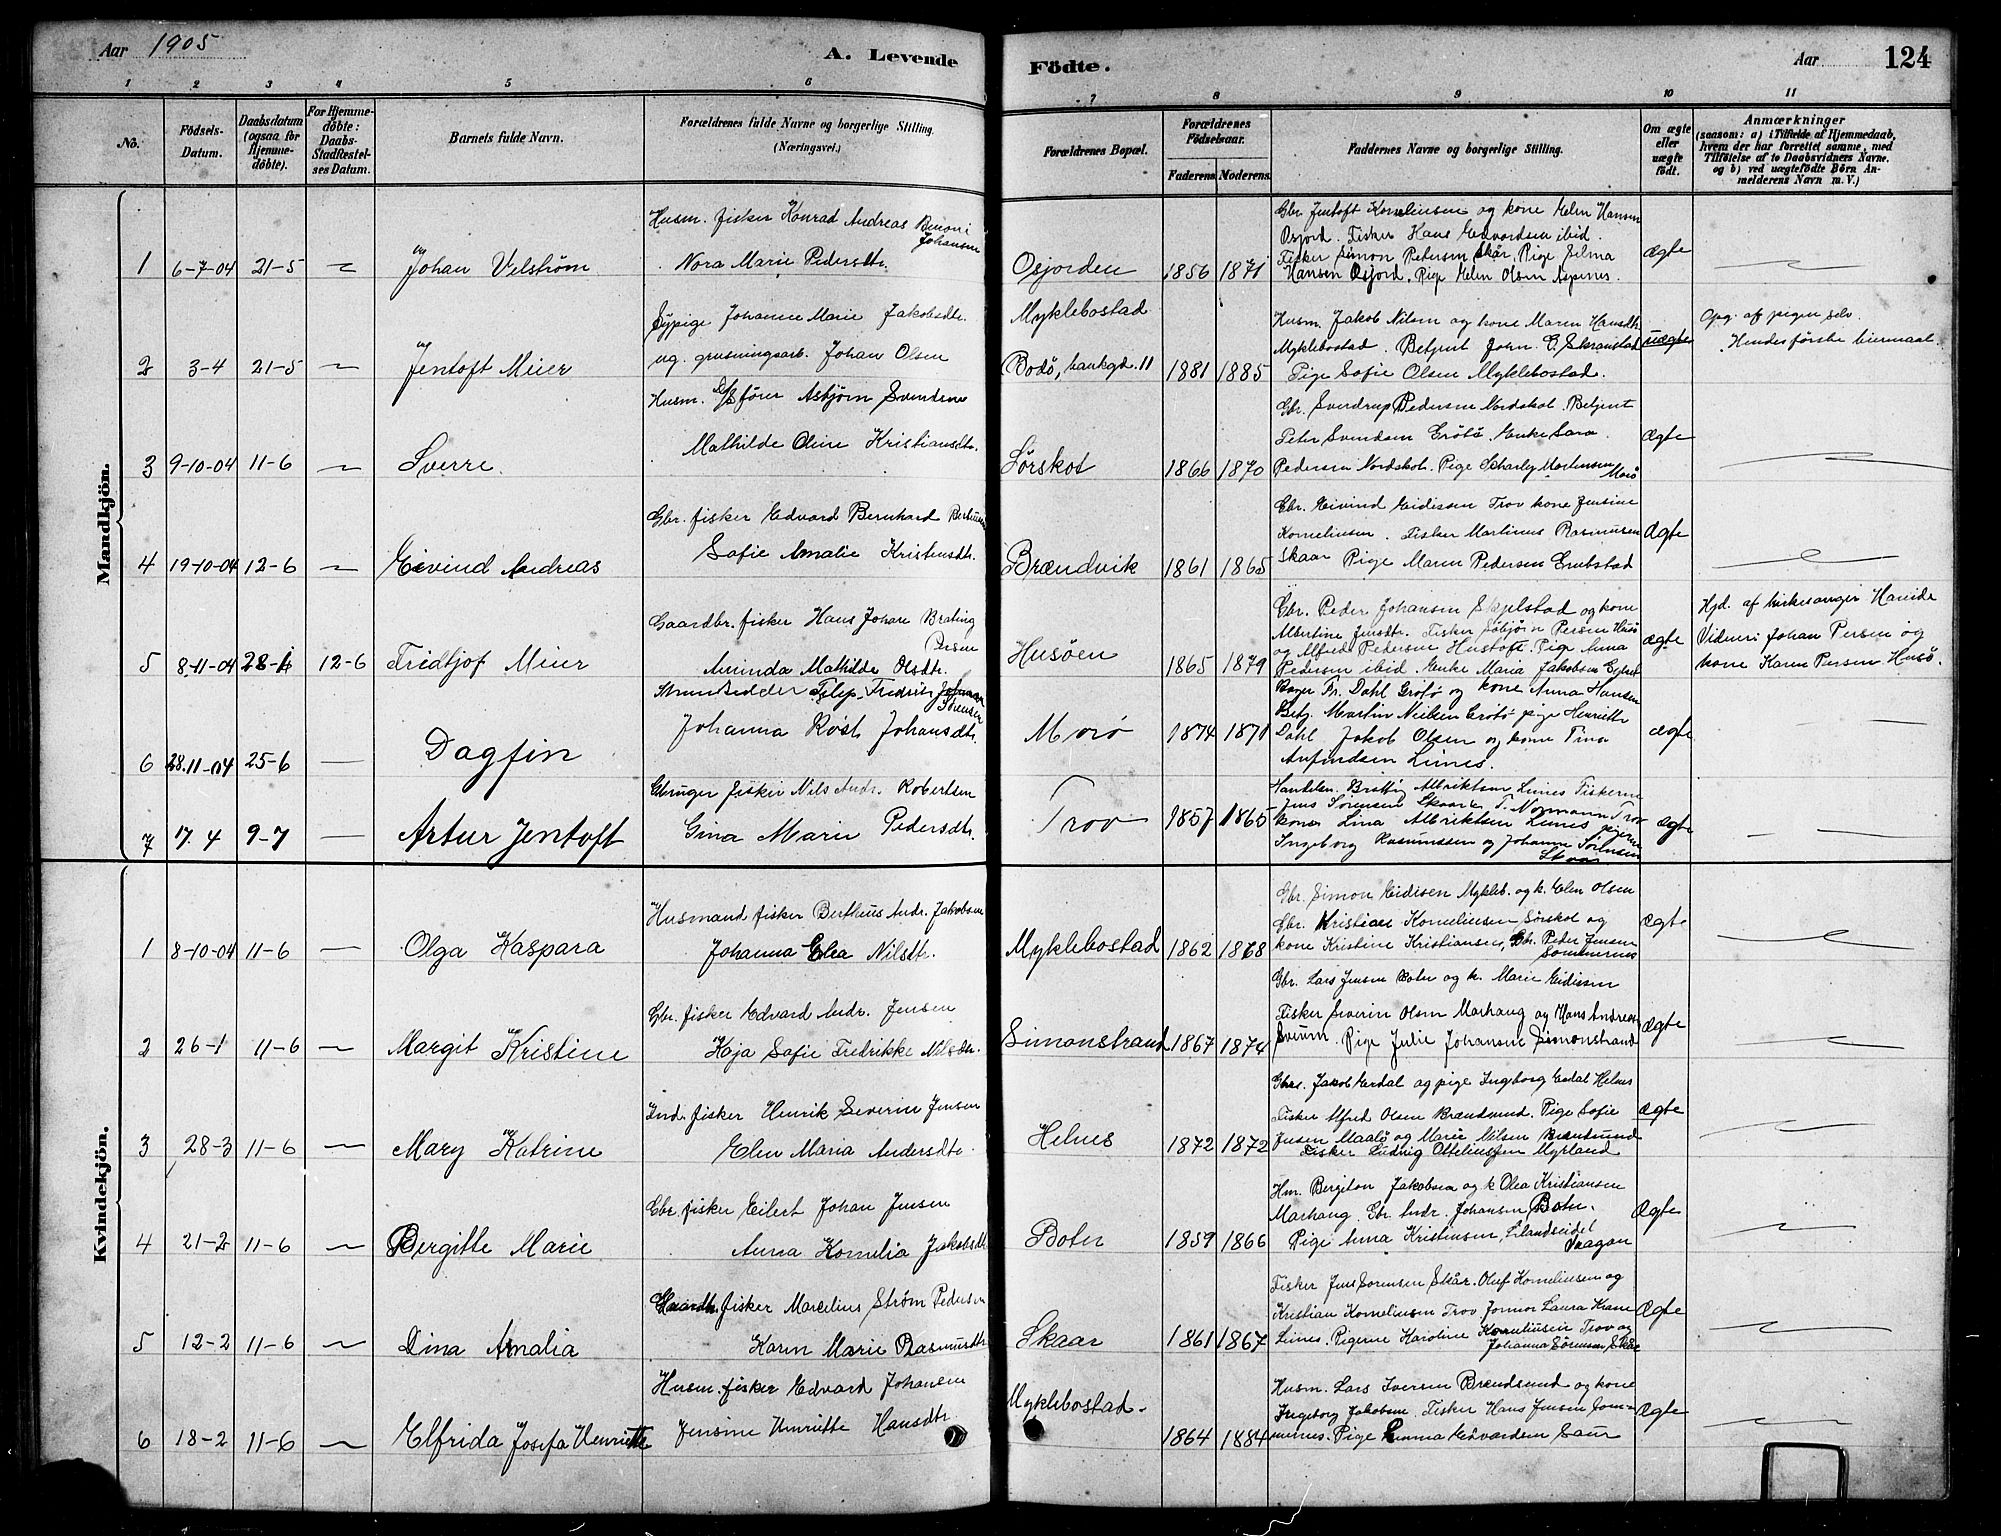 Aar 1905
A. Levende Födte.
Aar
124
1 2 3 4 5 6 7 8 9 10 11
No.
Födsels-Datum.
Daabsdatum (ogsaa for Hjemmedöbte).
For Hjemmedöbte: Daabs-Stadfestelses Datum.
Barnets fulde Navn.
Forældrenes fulde Navne og borgerlige Stilling. (Næringsvei.)
Forældrenes Bopæl.
Forældrenes Födselsaar.
Faderens Moderens
Faddernes Navne og borgerlige Stilling.
Om ægte eller uægte födt.
Anmærkninger
(saasom: a) i Tilfælde af Hjemmedaab, hvem der har forrettet samme, med Tilföielse af to Daabsvidners Navne, og b) ved uægtefödte Börn Anmelderens Navn m. V.)
Mandkjön.
1 6-7-04 21-5 Johan Velstrøm
Husm. fisker Konrad Andreas Benoni Johansen
Nora Marie Pedersdtr.
Osjorden 1856 1871
Gbr. Jentoft Kornelinsen og kone Elen Hansen
Osjord. Fisker Hans Edvardsen ibid.
Fisker Simon Petersen Skår. Pige Selma
Hansen Osjord. Pige Elen Olsen
ægte
2 3-4 21-5 Jentoft Meier
Sypige Johanne Marie Jakobsdtr.
ug. grusningsarb. Johan Olsen
Myklebostad
Bodø, bankgt. 11 1881 1885
Husm. Jakob Nilsen og kone Maren Hansdtr.
Myklebostad. Betjent John
Pige Sofie Olsen Myklebostad.
uægte
Opg. af pigen selv.
Hendes første
3 9-10-04 11-6 Sverre.
Husm. D/S fører Asbjørn Svendsen
Mathilde Oline Kristiansdtr.
Sørskot 1866 1870
Gbr. Sverdrup Pedersen Nordskot. Betjent
Peter Svendsen Grøtø. Enke Sara
Pedersen Nordskot. Pige Scharley Mortensen Morø
ægte
4 19-10-04 12-6 Eivind Andreas
Gbr. fisker Edvard Bernhard
Sofie Amalie Kristensdtr.
Brændvik 1861 1865
Gbr. Eivind Eidissen Trov kone Jensine
Korneliusen. Fisker Martinus Rasmussen
Skaar Pige Maren Pedersen
Ægte
5 8-11-04 28-11 12-6 Fridtjof Meier
Gaardbr. fisker Hans Johan Brating Persen
Aminda Mathilde Olsdtr.
Husøen 1865 1879
Gbr. Peder Johansen Skjelstad og kone
Albertine Jensdtr. Fisker Asbjørn Persen Husø
og Alfred Pedersen Hustoft. Pige Anna
Pedersen ibid. Enke Maria Jakobsen
ægte
Hjd. af kirkesanger
Vidner: Johan Persen og
kone Karen Persen Husø.
6 28.11-04 25-6 Dagfin
Filip Fredrik Johansen Sørensen
Johanna Røst Johansdtr.
Morø 1874 1871
Fr. Dahl Grøtø og kone Anna Hansen
Betj. Martin Nielsen Grøtø pige Henriette
Dahl Jakob Olsen og kone Tina
Anfindsen Lines.
ægte
7 17.4 9-7 Artur Jentoft
Gbruger fisker Nils Andr. Robertsen
Gina Marie Pedersdtr.
Trov 1857 1865
Albriktsen Lines Fiskerne
Jens Sörensen Skaar T. Normann Trov
kone Lina Albriktsen Lines pigerne
Ingeborg Rasmussen og Johanne Sörensen
Skaar
ægte
Kvindekjön.
1 8-10-04 11-6 Olga Kaspara
Husmand fisker Berthus Andr. Jakobsen
Johanna Elea Nilsdtr.
Myklebostad 1862 1868
Gbr. Simon Eidisen Mykleb. og k. Elen Olsen
Gbr. Kristian Korneliusen Sørskot og
kone Kristine Kristiansen, Gbr. Peder Jensen
Sommernes
Ægte
2 26-1 11-6 Margit Kristine
Gbr. fisker Edvard Andr. Jensen
Kaja Sofie Fredrikke Nilsdtr.
Simonstrand 1867 1874
Gbr. Lars Jensen Boten og k. Marie Eidissen
Fisker Severin Olsen Marhaug og Hans Andreas
Svenn. Pige Julie Johansen Simonstrand
Ægte
3 28-3 11-6 Mary Katrine
Ind. fisker Henrik Severin Jensen
Elen Maria Andersdtr.
Helnes 1872 1872
Gbr. Jakob Eerdal og pige Ingborg Eerdal Helnes
Fisker Alfred Olsen Brændsund. Pige Sofie
Jensen Maalø og Marie Nilsen Brændsund
Fisker Ludvig Otteliussen Myrland
Ægte
4 21-2 11-6 Bergitte Marie
Gbr. fisker Eilert Johan Jensen
Anna Kornelia Jakobsdtr.
Boten 1859 1866
Hm. Bergiton Jakobsen og k Olea Kristiansen
Marhaug. Gbr. Andr. Johansen Boten.
Pige Anna Kristensen,
Vaagan
Ægte
5 12-2 11-6 Dina Amalia
Gaardbr. fisker Marcelius Strøm Pedersen
Karen Marie Rasmusdtr
Skaar 1861 1867
Fisker Jens Sørensen Skår. Oluf Korneliusen og
Kristian Korneliusen Trov Jomfr Laura Krane
Leines. Pigerne Karoline Korneliusen Trov og
Johanna Sørensen Skår
Ægte
6 18-2 11-6 Elfrida Josefa Henriette
Husm. fisker Edvard Johansen
Jensine Henriette Hansdtr.
Myklebostad. 1864 1884
Husm. Lars Iversen Brændsund og kone
Ingeborg Jakobsen. Fisker Hans Jensen Som-
mernes. Pige Emma Edvardsen Saur
Ægte